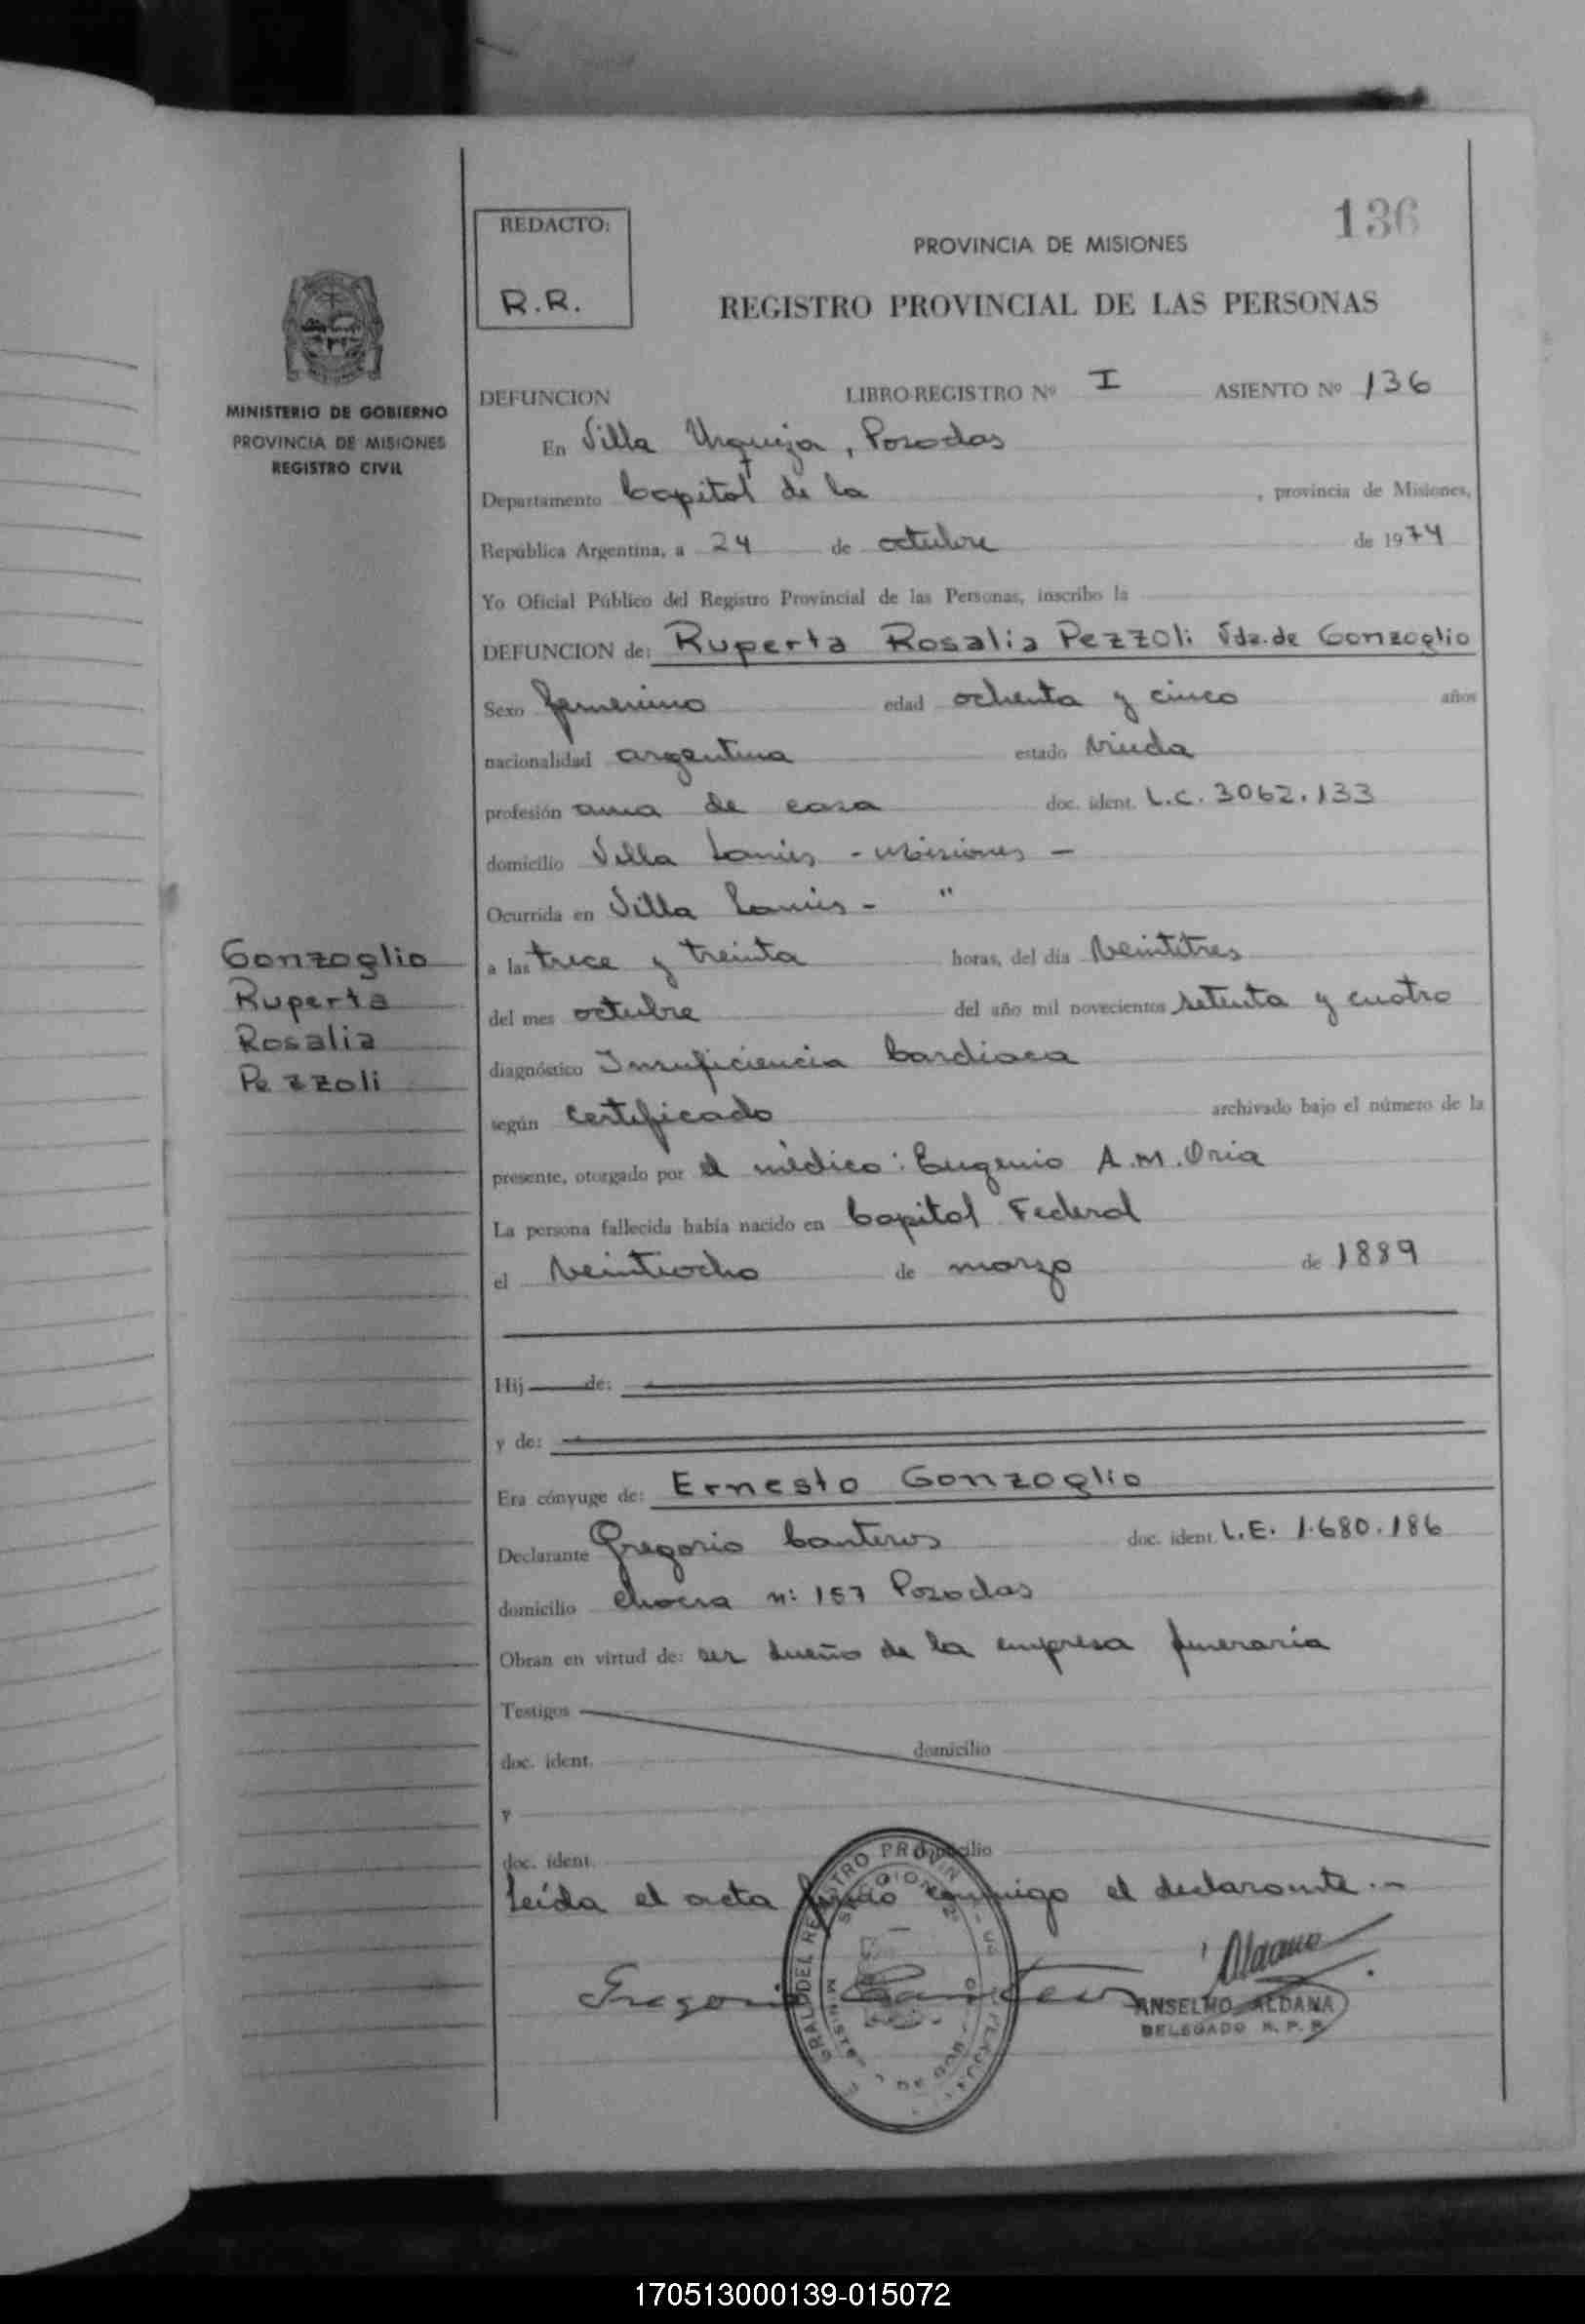 136
REDACTO:
R.R.
PROVINCIA DE MISIONES
REGISTRO PROVINCIAL DE LAS PERSONAS
MINISTERIO DE GOBIERNO
PROVINCIA DE MISIONES
REGISTRO CIVIL
DEFUNCION LIBRO-REGISTRO Nº I ASIENTO Nº 136
En Villa Urquiza, Posadas
Departamento Capital de la , provincia de Misiones,
República Argentina, a 24 de octubre de 1974
Yo Oficial Público del Registro Provincial de las Personas, inscribo la
DEFUNCION de: Ruperta Rosalia Pezzoli Vda. de Gonzoglio
Sexo femenino edad ochenta y cinco años
nacionalidad argentina estado viuda
profesión ama de casa doc. ident. L.C. 3062.133
domicilio Villa Lanús - Misiones -
Ocurrida en Villa Lanús - "
a las trece y treinta horas, del día veintitres
del mes octubre del año mil novecientos setenta y cuatro
diagnóstico Insuficiencia Cardiaca
según certificado archivado bajo el número de la
presente, otorgado por el médico: Eugenio A.M. Oria
La persona fallecida había nacido en Capital Federal
el veintiocho de marzo de 1889
Gonzoglio
Ruperta
Rosalia
Pezzoli
Hij de:
y de:
Era cónyuge de: Ernesto Gonzoglio
Declarante Gregorio Canteros doc. ident. L.E. 1.680.186
domicilio chacra n: 157 Posadas
Obran en virtud de: ser dueño de la empresa funeraria
Testigos
doc. ident. domicilio
y
doc. ident. domicilio
Leída el acta firmó conmigo el declarante.-
Gregorio Canteros
Aldana
ANSELMO ALDANA
DELEGADO R. P. P.
170513000139-015072